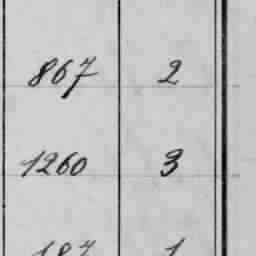 867 2
1260 3
187 1